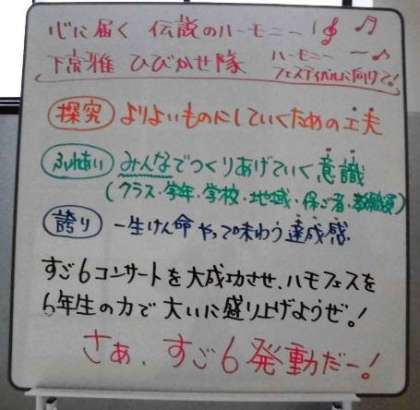 心に届く 伝説のハーモニー
下高雅 ひびかせ隊 ハーモニー
フェスティバルに向けて!
探究 よりよいものにしていくための工夫
ふれあい みんなでつくりあげていく意識
(クラス・学年・学校・地域・保ご者・教職員)
誇り 一生けん命やって味わう達成感
すご6コンサートを大成功させ、ハモフェスを
6年生の力で大いに盛り上げようぜ!
さあ、すご6発動だー!